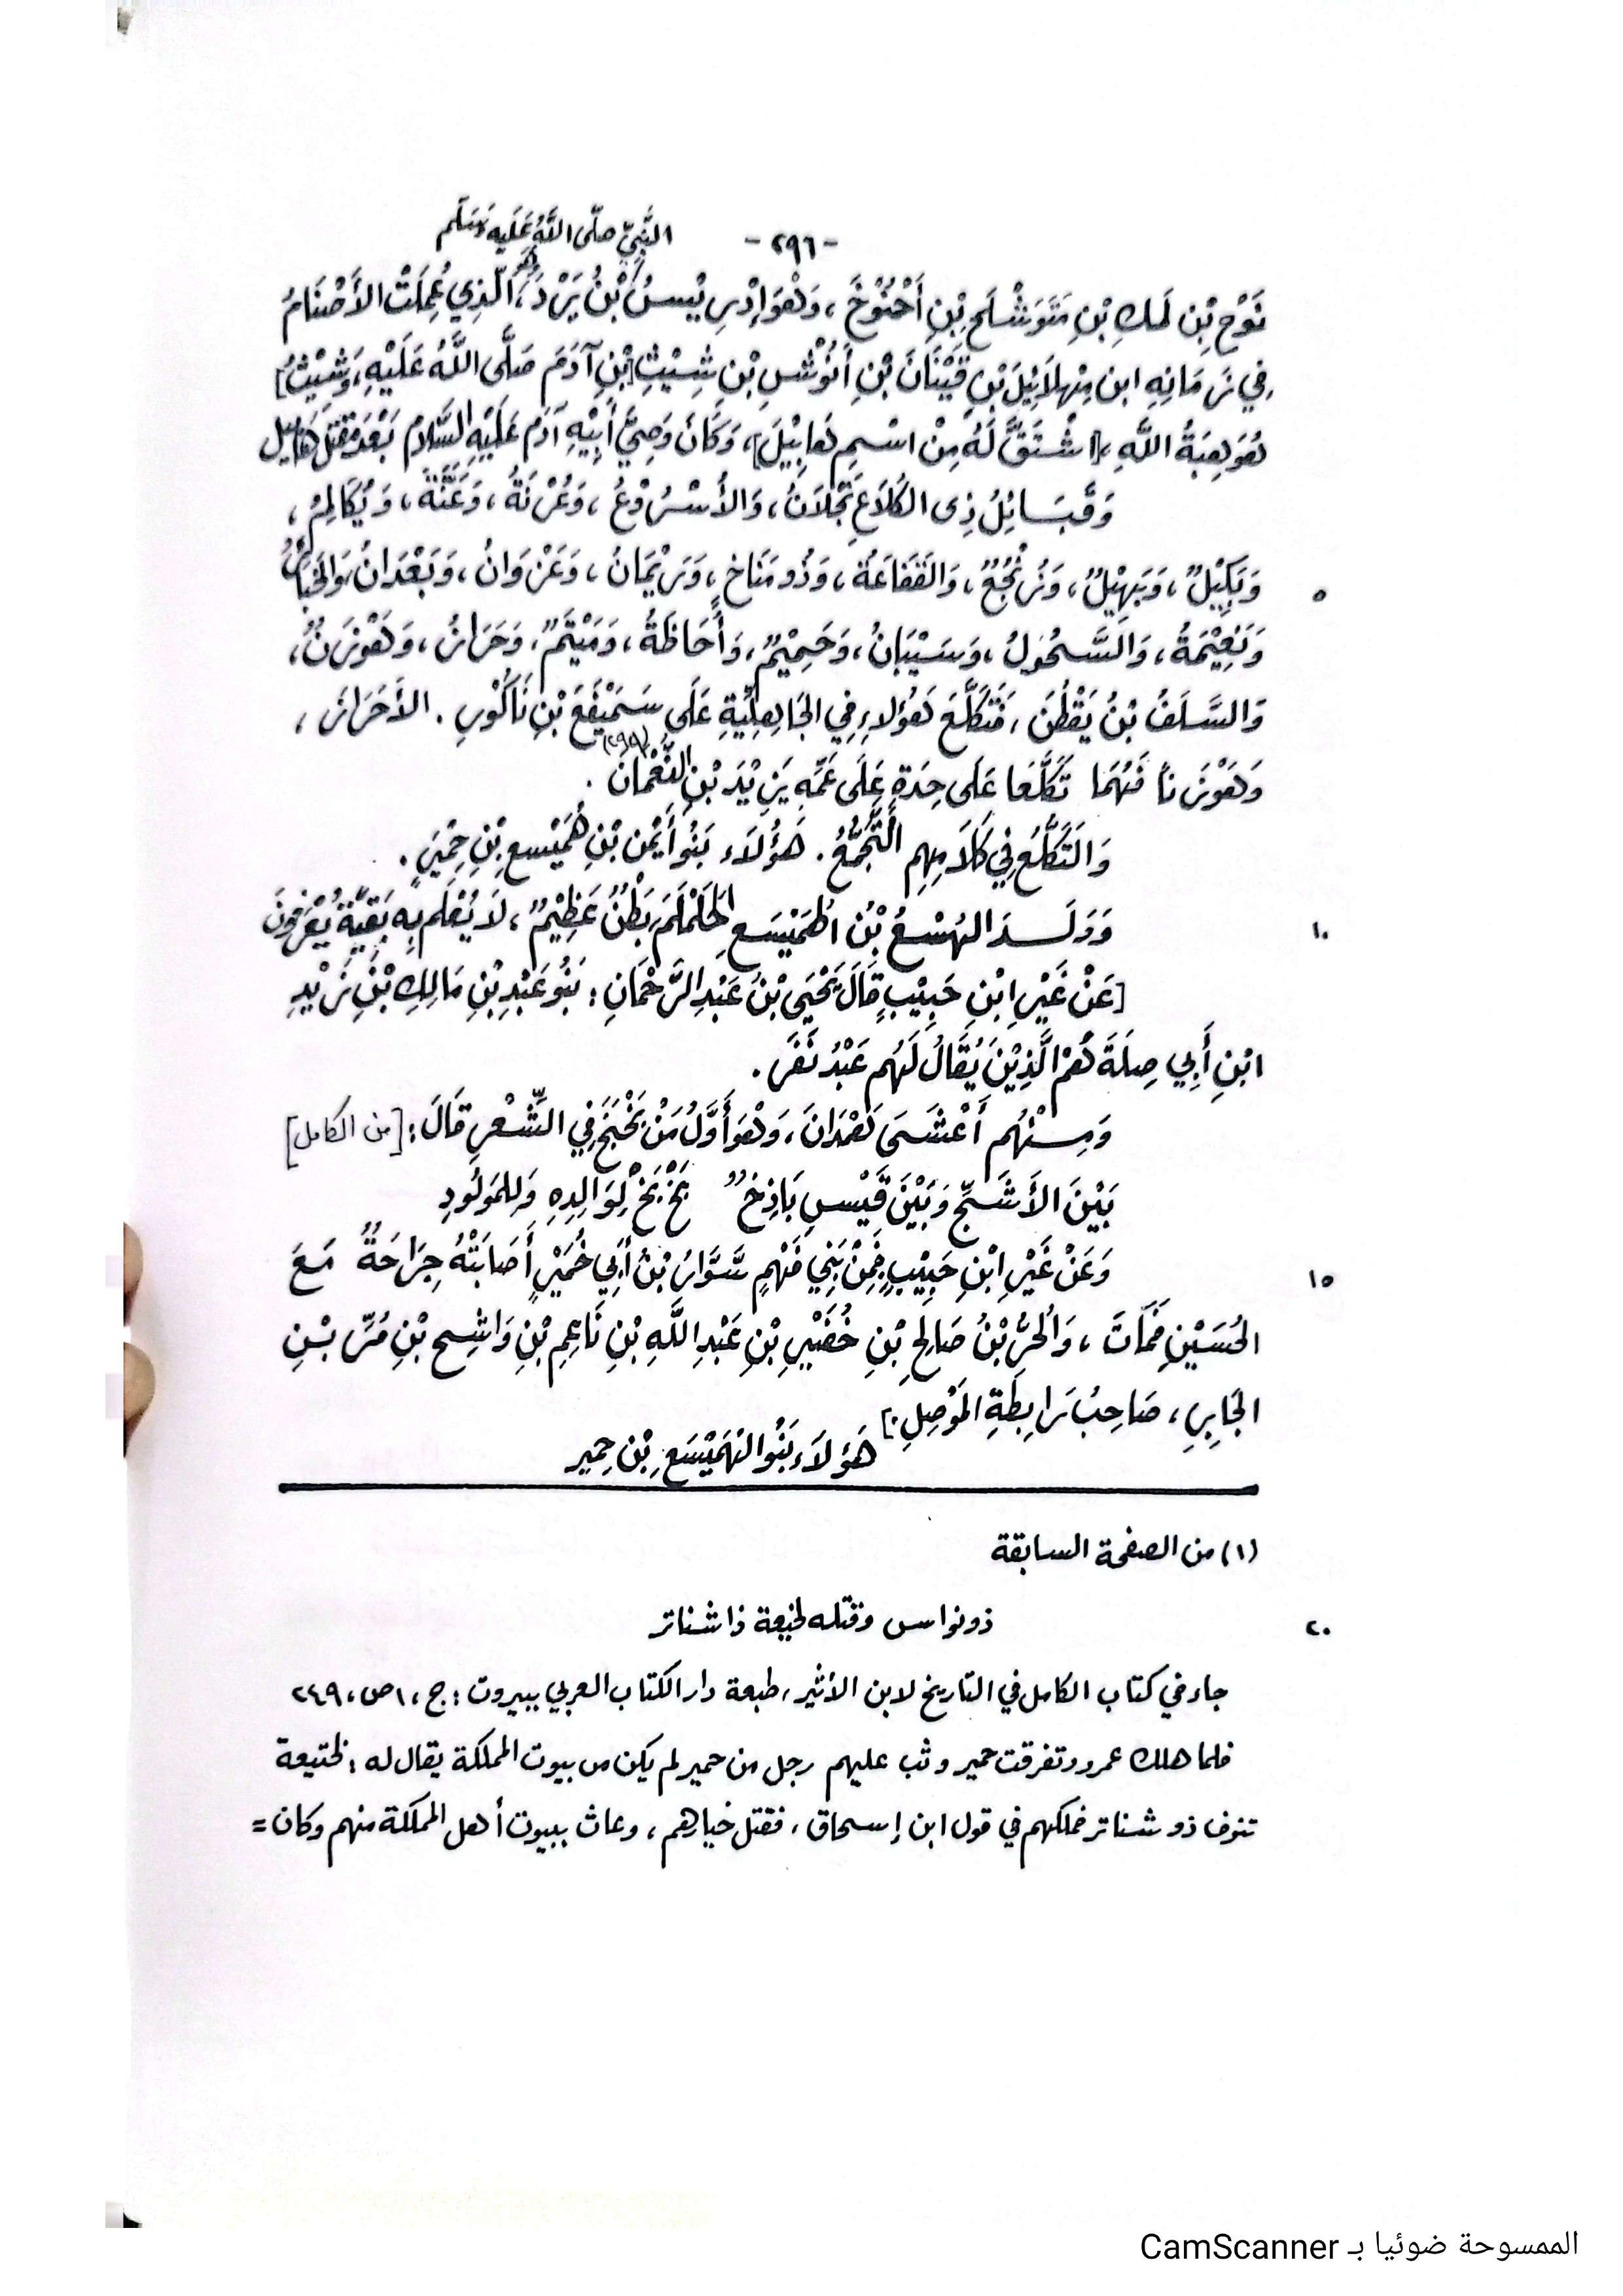 -٢٩٦- النَّبِيِّ صلّى اللَّهُ عَلَيهِ وَسَلَّم
نُوْحِ بْنِ لَمَكِ بْنِ مَتَوَشْلَحِ بْنِ أَخْنُوْخَ ، وَهُوَ إِدْرِيسُ بْنُ يَرْدَ، وَهُوَ الَّذِي عُمِلَتْ الأَصْنَامُ
فِي زَمَانِهِ ابن مِهلَائِيْلَ بْنِ قَيْنَانَ بْنِ أَنُوْشِ بْنِ شِيْثِ [بْنِ آدَمَ صَلَّى اللَّهُ عَلَيْهِ، وَشِيْثُ]
هُوَ هِبَةُ اللَّهِ ،[اشْتَقَّ لَهُ مِنْ اسْمِ هَابِيْلَ]، وَكَانَ وَصِيَّ أَبِيْهِ آدَمَ عَلَيْهِ السَّلامُ بَعْدَ مَقْتَلِ هَابِيل
وَقَبَائِلُ ذِى الكَلَاعِ نَجْلَانُ ، وَالأُسْرُوْعُ ، وَعُرْنَةُ ، وَعَنَّةُ ، وَيُكَالِمُ ،
٥ وَبَكِيْلٌ ، وَبَهِيْلٌ ، وَزُنْجُعٌ ، وَالقَفَاعَةُ ، وَذُو مَنَاخٍ ، وَرَيْمَانُ ، وَعَزْوَانُ ، وَبَعْدَانُ ، وَالخَبَائِرُ
وَنُعِيْمَةُ ، وَالسَّحُولُ ، وَسَيْبَانُ ، وَحَمِيْمٌ ، وَأُحَاظَةُ ، وَمَيْتَمٌ ، وَحَرَازُ ، وَهَوْزَنُ ،
وَالسَّلَفُ بْنُ يَقْطُنَ ، فَتَكَلَّعَ هَؤُلاءِ فِي الجَاهِلِيَّةِ عَلَى سَمَيْفَعَ بْنِ نَاكُوْرِ . الأَحَرَازَ ،
وَهَوْزَنَا فَإِنَّهُمَا تَكَلَّعَا عَلَى حِدَةٍ عَلَى عَمِّهِ يَزِيْدَ بْنِ النُّعْمَانِ .
وَالتَكَلُّعُ فِي كَلَامِهِم التَّجَمُّعُ . هَؤُلَاءِ بَنُو أَيْمَنَ بْنِ هُمَيْسعِ بْنِ حِمْيَرٍ .
١٠ وَوَلَدَ الهُسْعُ بْنُ الهَمَيْسَعِ الحَلْمَلَمَ بَطْنٌ عَظِيْمٌ ، لَا يُعْلَم بِهِ بَقِيَّةٌ يُعْرَفُونَ
[عَنْ غَيْرِ ابْنِ حَبِيْبٍ قَالَ يَحْيَى بْنُ عَبْدِ الرَّحْمَانِ : بَنُو عَبْدِ بْنِ مَالِكِ بْنِ زَيْدِ
ابْنِ أَبِي صِلَةَ هُمْ الَّذِيْنَ يُقَالُ لَهُم عَبْدُ نَفَرَ .
وَمِنْهُم أَعْشَى هَمْدَانَ ، وَهُوَ أَوَّلُ مَنْ بَخْبَخَ فِي الشِّعْرِ قَالَ : [من الكامل]
بَيْنَ الأَشَجِّ وَبَيْنَ قَيْسٍ بَاذِخٌ بَخْ بَخْ لِوَالِدِهِ وَلِلمَولُودِ
١٥ وَعَنْ غَيْرِ ابْنِ حَبِيْبٍ فَمِنْ بَنِي فَهْمٍ سَوَّارُ بْنُ أَبِي خُمَيْرٍ أَصَابَتْهُ جِرَاحَةٌ مَعَ
الحُسَيْنِ فَمَاتَ ، وَالحُرُّ بْنُ صَالِحِ بْنِ خُضَيْرِ بْنِ عَبْدِ اللَّهِ بْنِ نَاعِمِ بْنِ وَاشِحِ بْنِ مُرِّ بْنِ
الجَابِرِ ، صَاحِبُ رَابِطَةِ المَوْصِلِ .]
هَؤُلَاءِ بَنُو الهَمَيْسَعِ بْنِ حِمير
(١) من الصفحة السابقة
٢٠ ذو نواس وقتله لخيعة ذا شناتر
جاء في كتاب الكامل في التاريخ لابن الأثير، طبعة دار الكتاب العربي ببيروت : ج ، ١ ص ، ٢٤٩
فلما هلك عمرو وتفرقت حمير وثب عليهم رجل من حمير لم يكن من بيوت المملكة يقال له : لختيعة
تنوف ذو شناتر فملكهم في قول ابن إسحاق ، فقتل خيارهم ، وعاث ببيوت أهل المملكة منهم وكان =
الممسوحة ضوئيا بـ CamScanner